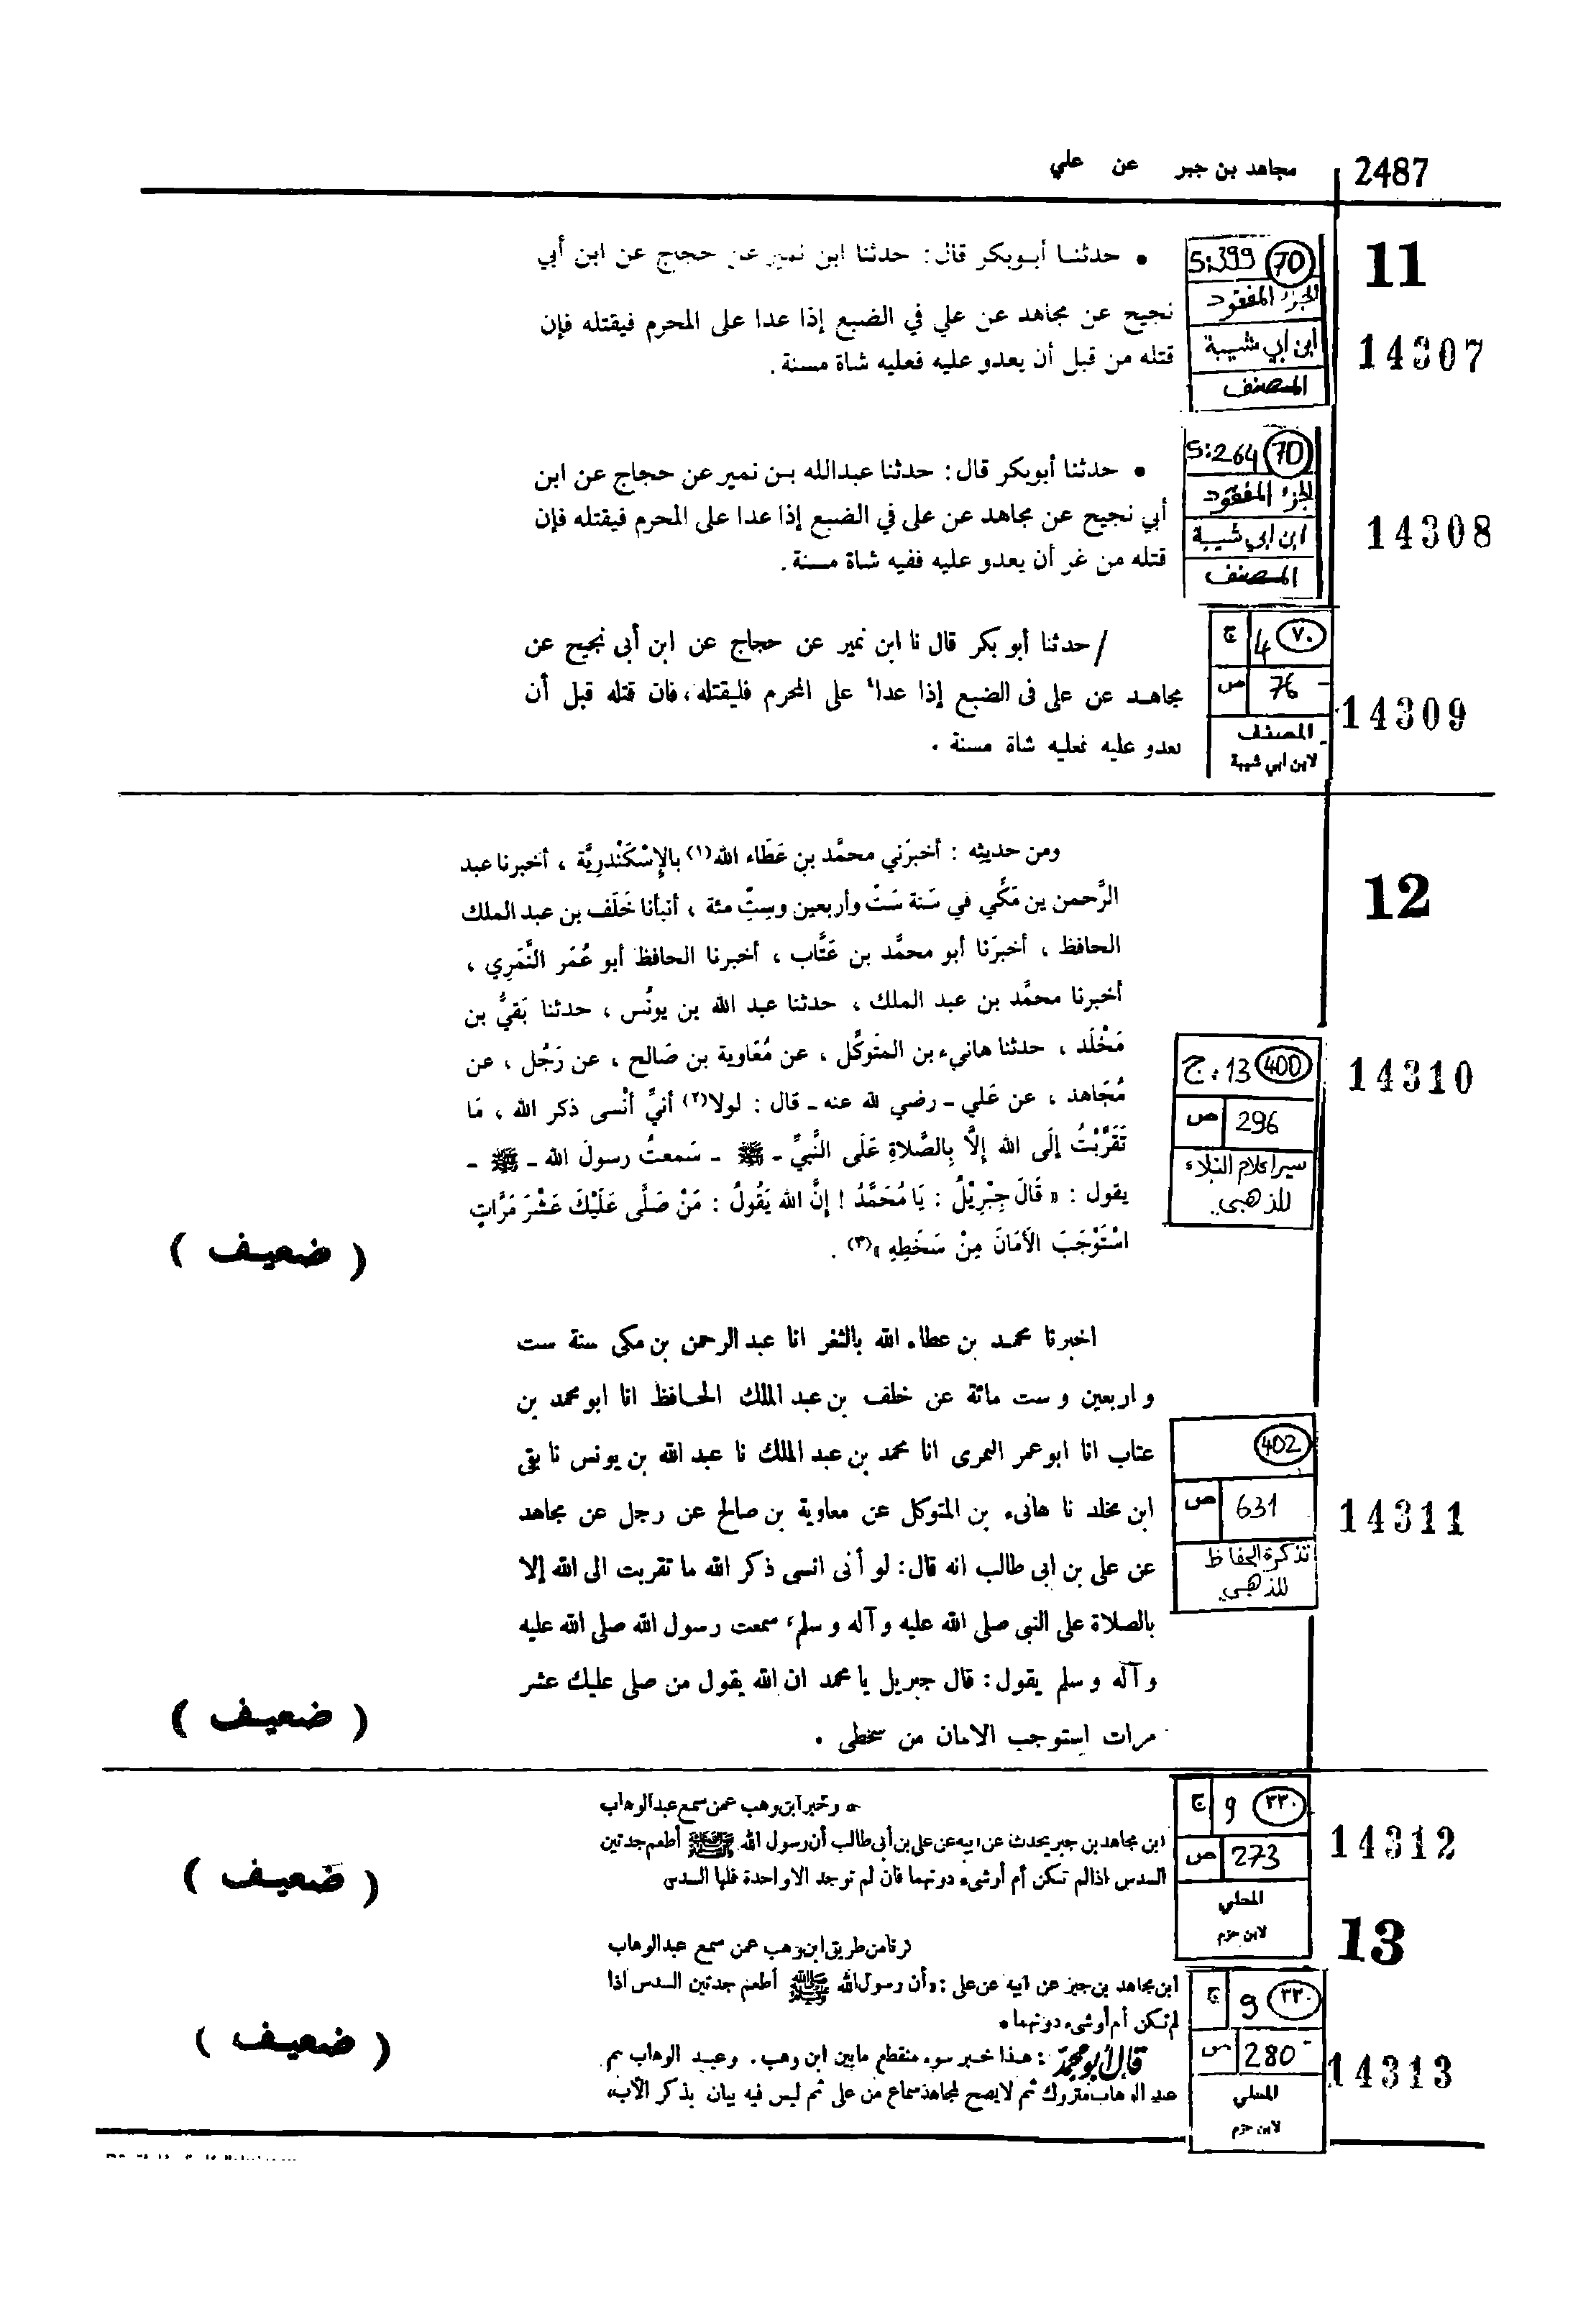 2487
مجاهد بن جبر عن علي
11
70 5:399
الجزء المفقود
ابن ابي شيبة
المصنف
14307
• حدثنا أبوبكر قال: حدثنا ابن نمير عن حجاج عن ابن أبي
نجيح عن مجاهد عن علي في الضبع إذا عدا على المحرم فيقتله فإن
قتله من قبل أن يعدو عليه فعليه شاة مسنة.
70 5:264
الجزء المفقود
ابن ابي شيبة
المصنف
14308
• حدثنا أبوبكر قال: حدثنا عبدالله بن نمير عن حجاج عن ابن
أبي نجيح عن مجاهد عن على في الضبع إذا عدا على المحرم فيقتله فإن
قتله من غر أن يعدو عليه ففيه شاة مسنة.
٧٠ 4 ج
76 ص
المصنف
لابن ابي شيبة
14309
/ حدثنا أبو بكر قال نا ابن نمير عن حجاج عن ابن أبى نجيح عن
مجاهد عن على فى الضبع إذا عدا٤ على المحرم فليقتله، فان قتله قبل أن
يعدو عليه فعليه شاة مسنة .
12
ومن حديثه : أخبرَني محمَّد بن عَطَاء الله(١) بالإِسْكَنْدرِيَّة ، أخبرنا عبد
الرَّحمن بن مَكِّي في سَنة سَتّ وأربعين وسِتِّ مئة ، أنبأنا خَلَف بن عبد الملك
الحافظ ، أخبرَنا أبو محمَّد بن عَتَّاب ، أخبرنا الحافظ أبو عُمَر النَّمَرِي ،
أخبرنا محمَّد بن عبد الملك ، حدثنا عبد الله بن يونُس ، حدثنا بَقيُّ بن
مَخْلَد ، حدثنا هانيء بن المتَوكِّل ، عن مُعَاوية بن صَالح ، عن رَجُل ، عن
مُجَاهد ، عن عَلي ـ رضي لله عنه ـ قال : لولا(٢) أنيِّ أنْسى ذكر الله ، مَا
تَقَرَّبْتُ إلَى الله إلَّا بِالصَّلاةِ عَلَى النَّبيِّ ـ ﷺ ـ سَمعتُ رسولَ الله ـ ﷺ ـ
يقول : « قَالَ جِبْرِيْلُ : يَا مُحَمَّدُ ! إنَّ الله يَقُولُ : مَنْ صَلَّى عَلَيْكَ عَشْرَ مَرَّاتٍ
اسْتَوْجَبَ الأَمَانَ مِنْ سَخَطِهِ »(٣) .
400 13 ج
296 ص
سير اعلام النبلاء
للذهبي
14310
( ضعيف )
اخبرنا محمد بن عطاء الله بالثغر انا عبد الرحمن بن مكى سنة ست
و اربعين و ست مائة عن خلف بن عبد الملك الحافظ انا ابو محمد بن
عتاب انا ابو عمر النمرى انا محمد بن عبد الملك نا عبد الله بن يونس نا بقى
ابن مخلد نا هانىء بن المتوكل عن معاوية بن صالح عن رجل عن مجاهد
عن على بن ابى طالب انه قال: لو أنى انسى ذكر الله ما تقربت الى الله إلا
بالصلاة على النبى صلى الله عليه و آله و سلم، سمعت رسول الله صلى الله عليه
و آله و سلم يقول: قال جبريل يا محمد ان الله يقول من صلى عليك عشر
مرات استوجب الامان من سخطى .
402
631 ص
تذكرة الحفاظ
للذهبي
14311
( ضعيف )
٣٣٠ 9 ج
273 ص
المحلي
لابن حزم
14312
ابن وهب عمن سمع عبد الوهاب
ابن مجاهد بن جبر يحدث عن ابيه عن على بن أبى طالب أن رسول الله ﷺ أطعم جدتين
السدس اذا لم تكن أم أو شىء دونهما فان لم توجد الا واحدة فلها السدس
( ضعيف )
13
من طريق ابن وهب عمن سمع عبد الوهاب
ابن مجاهد بن جبر عن ابيه عن على : «أن رسول الله ﷺ أطعم جدتين السدس اذا
لم تكن أم أو شىء دونهما»
قال أبو محمد : هذا خبر سوء منقطع ما بين ابن وهب . وعبد الوهاب ثم
عبد الوهاب متروك ثم لا يصح لمجاهد سماع من على ثم ليس فيه بيان بذكر الأب
٣٣٠ 9 ج
280 ص
المحلي
لابن حزم
14313
( ضعيف )